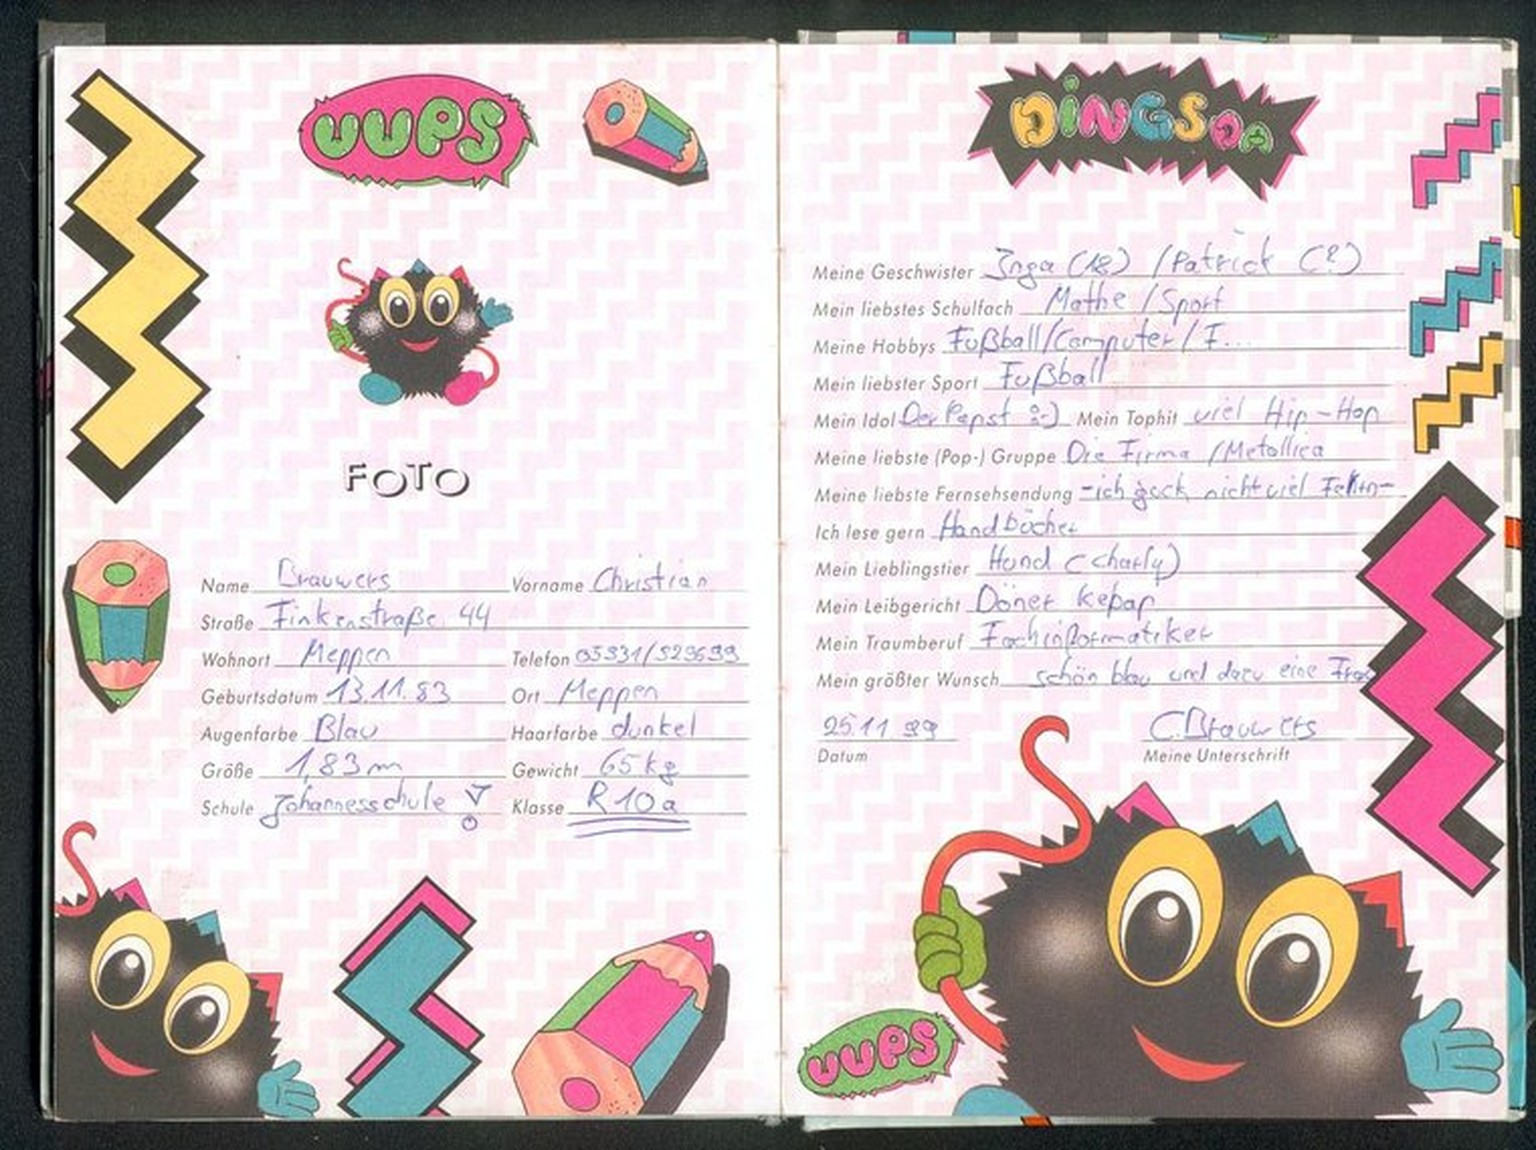 UUPS
FOTO
Name Brauwers Vorname Christian
Straße Finkenstraße 44
Wohnort Meppen Telefon 05931/929699
Geburtsdatum 13.11.83 Ort Meppen
Augenfarbe Blau Haarfarbe dunkel
Größe 1,83m Gewicht 65kg
Schule Johannesschule Klasse R10a
DINGSDA
Meine Geschwister Inga (18) / Patrick (?)
Mein liebstes Schulfach Mathe / Sport
Meine Hobbys Fußball/Computer/F...
Mein liebster Sport Fußball
Mein Idol Der Papst :-) Mein Tophit viel Hip-Hop
Meine liebste (Pop-) Gruppe Die Firma / Metallica
Meine liebste Fernsehsendung -ich guck nicht viel
Ich lese gern Handbücher
Mein Lieblingstier Hund (Charly)
Mein Leibgericht Döner Kebap
Mein Traumberuf Fachinformatiker
Mein größter Wunsch schön blau und dazu eine
25.11.99 C.Brauwers
Datum Meine Unterschrift
UUPS